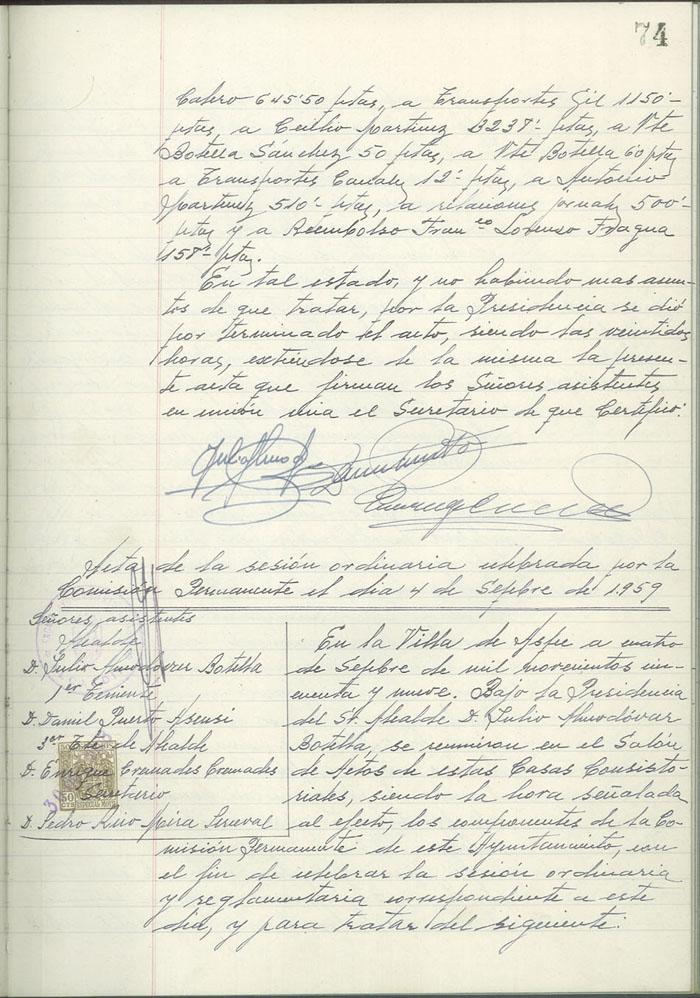 74
Calero 645'50 ptas, a Transportes Gil 1150'-
ptas, a Cecilio Martinez 3237'- ptas, a Vte
Botella Sánchez 50 ptas, a Vte Botella 60 ptas
a Transportes Canaly 12'- ptas, a Antonio
Martinez 510'- ptas, a relaciones jornales 500'-
ptas y a Reembolso Fran.co Lorenzo Fragua
157'- ptas.
En tal estado, y no habiendo mas asun-
tos de que tratar, por la Presidencia se dió
por terminado el acto, siendo las veintidos
horas, extiendose de la misma la presen-
te acta que firman los Señores asistentes
en unión mia el Secretario de que Certifico:
Acta de la sesión ordinaria celebrada por la
Comisión Permanente el dia 4 de Sepbre de 1.959
Señores asistentes
Alcalde
D. Julio Almodóvar Botella
1er Teniente
D. Daniel Puerto Asensi
3er Tte de Alcalde
D. Enrique Cremades Cremades
Secretario
D. Pedro Mira Perceval
50 CTS ESPECIAL MOVIL
En la Villa de Aspe a cuatro
de Sepbre de mil novecientos cin-
cuenta y nueve. Bajo la Presidencia
del Sr. Alcalde D. Julio Almodóvar
Botella, se reunieron en el Salón
de Actos de estas Casas Consisto-
riales, siendo la hora señalada
al efecto, los componentes de la Co-
misión Permanente de este Ayuntamiento, con
el fin de celebrar la sesión ordinaria
y reglamentaria correspondiente a este
dia, y para tratar del siguiente: